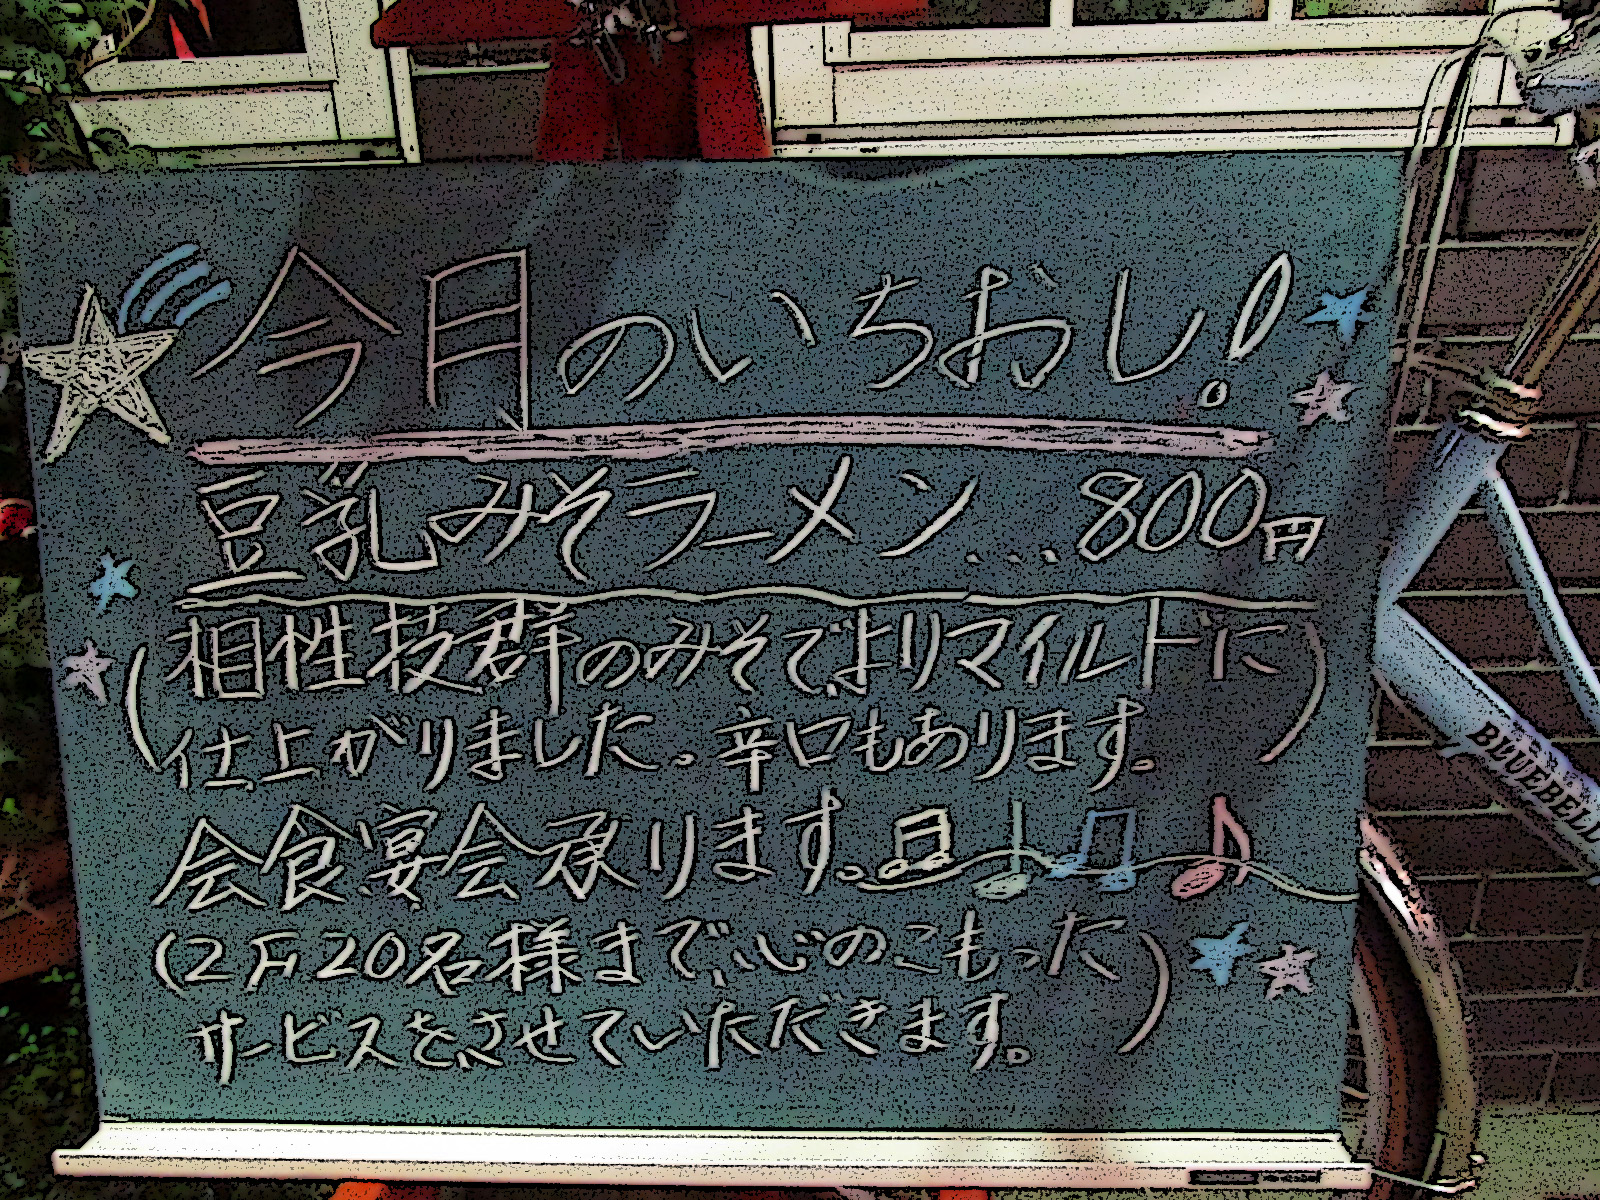 今月のいちおし!
豆乳みそラーメン...800円
(相性抜群のみそでよりマイルドに
仕上がりました。辛口もあります。)
会食宴会承ります。
(2F20名様まで、心のこもった
サービスをさせていただきます。)
BLUEBELL